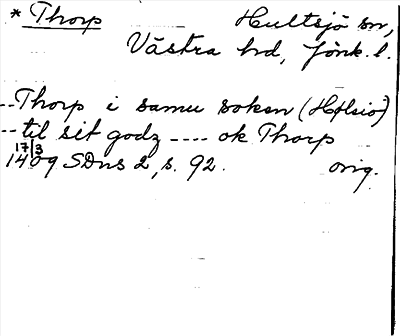 * Thorp Hultsjö sn,
Västra hd, Jönk. l.
-- Thorp i samu sokn (Hølsio)
-- til sit godz ---- ok Thorp
17/3 1409 SDns 2, s. 92. orig.